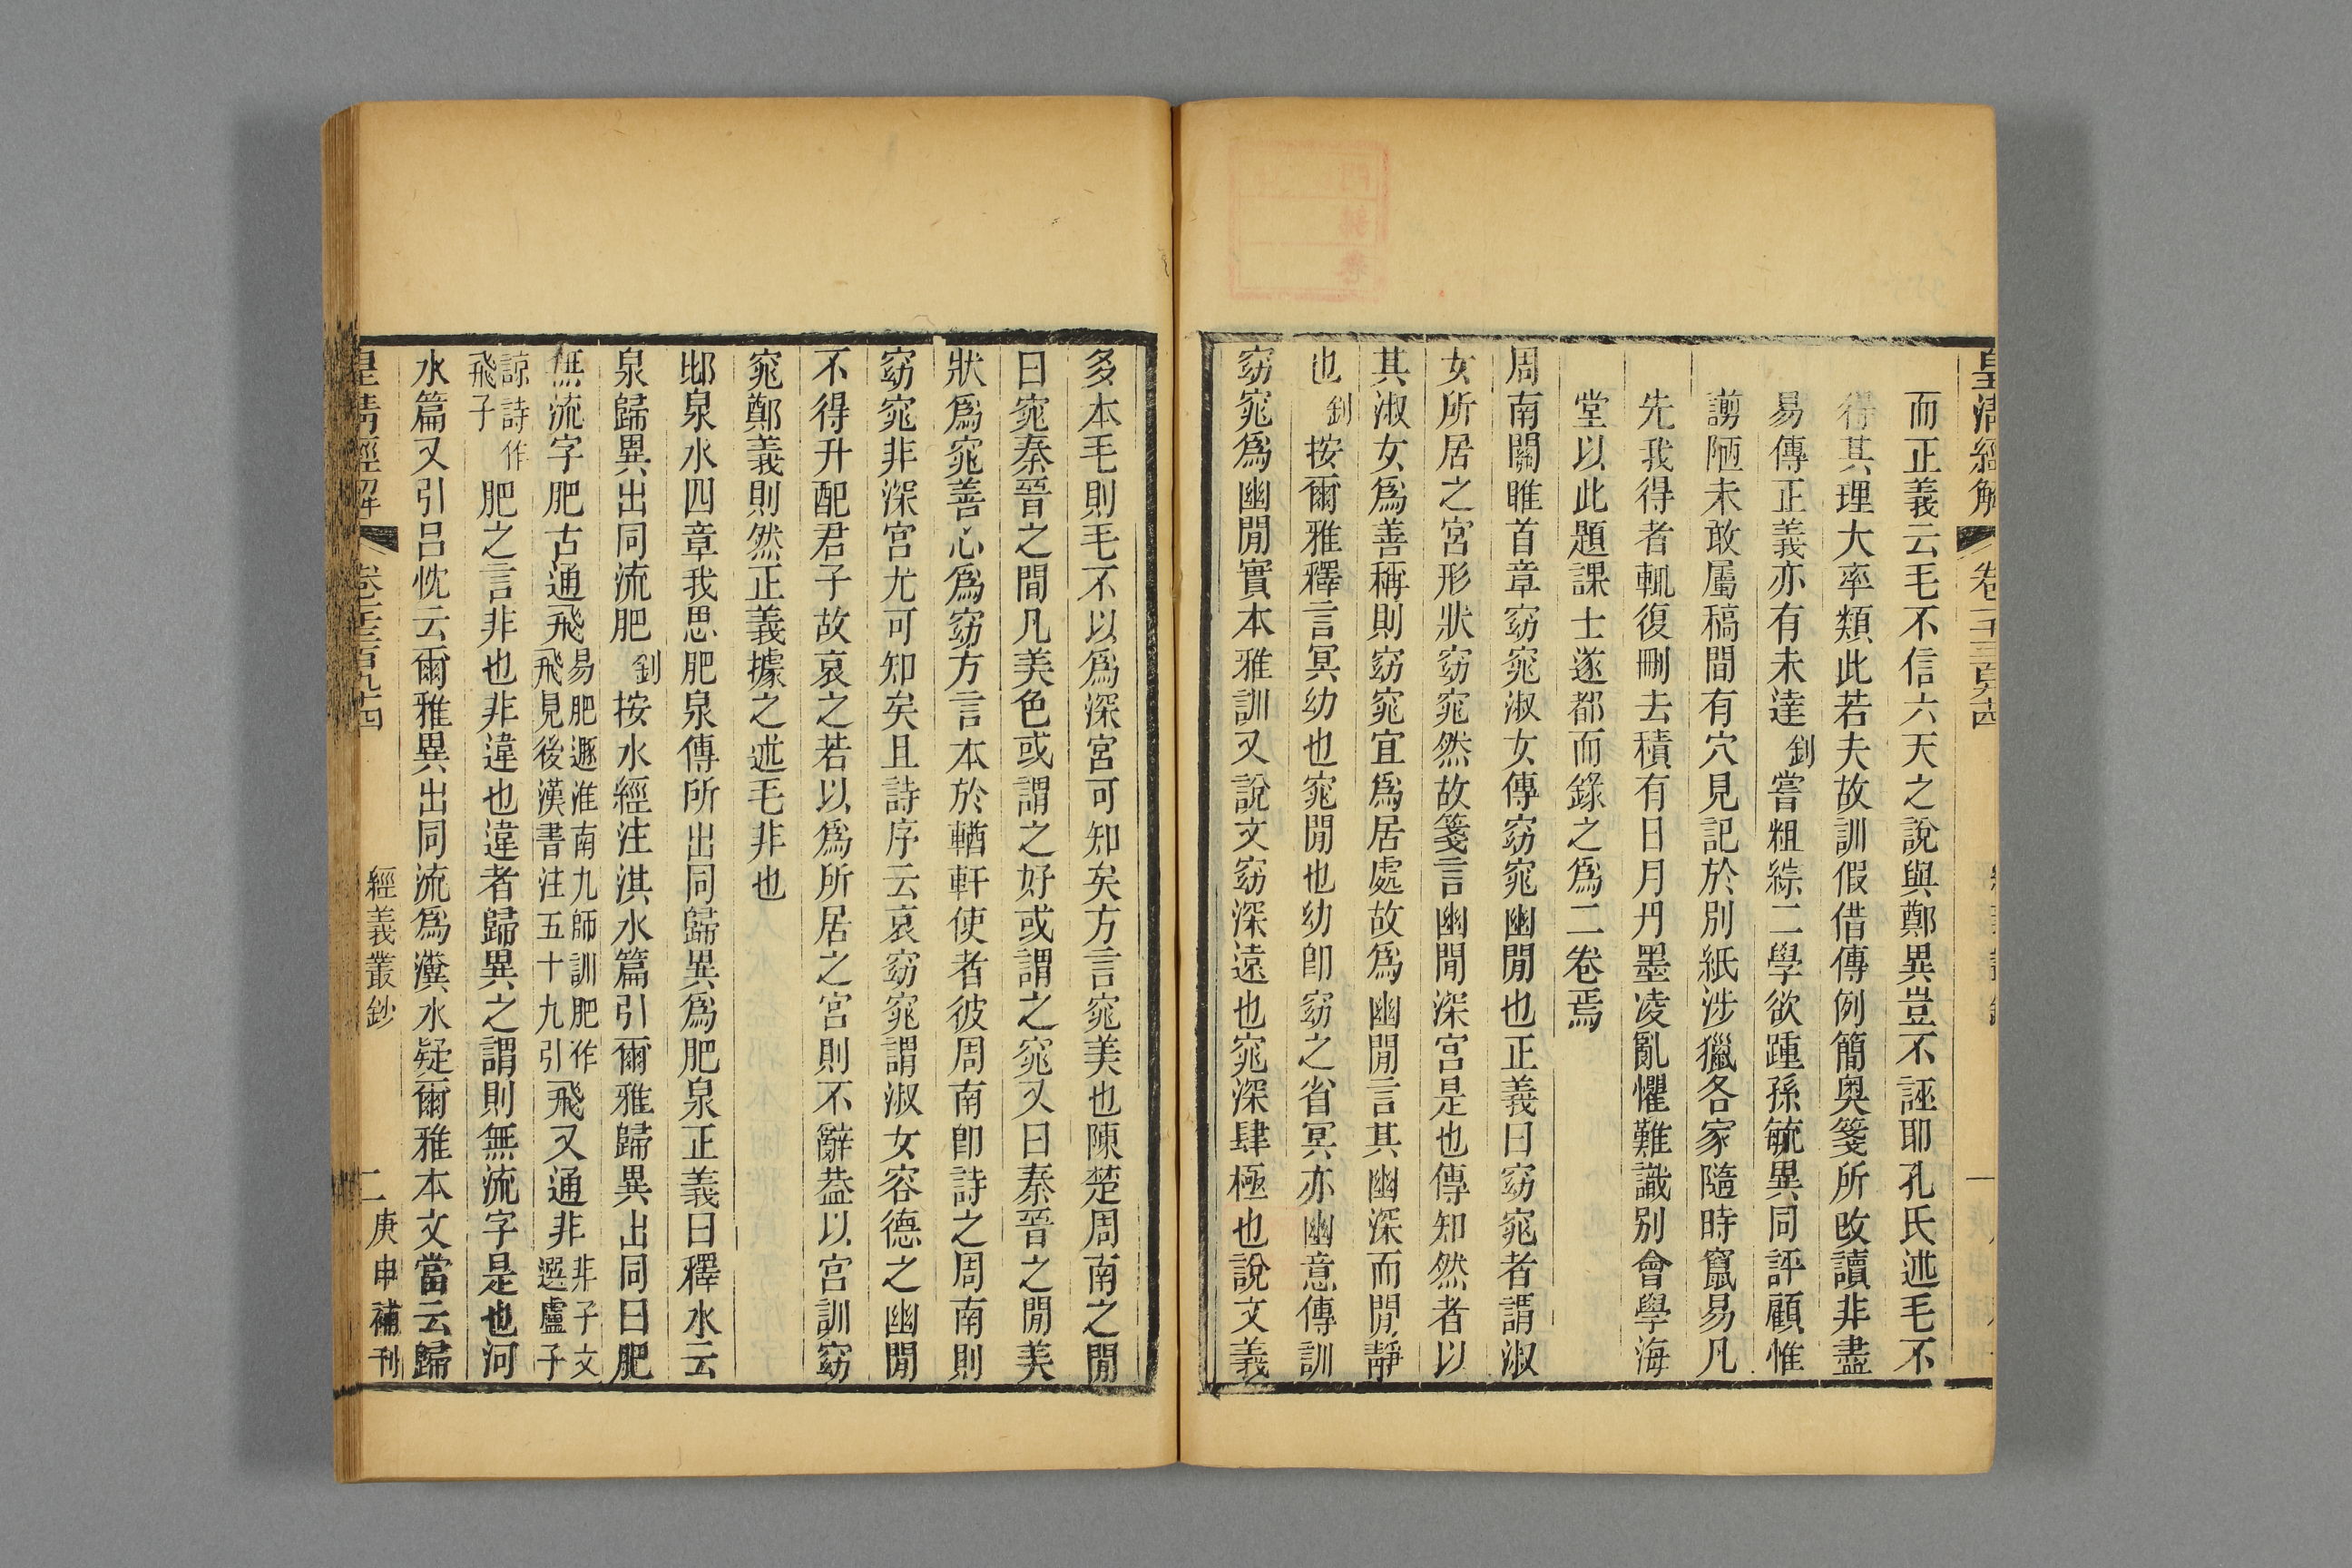 皇清經解
而正義云毛不信六天之說與鄭異豈不誣耶孔氏述毛不
得其理大率類此若夫故訓假借傳例簡奧箋所改讀非盡
易傳正義亦有未達釗嘗粗綜二學欲踵孫毓異同評顧惟
謭陋未敢屬稿間有穴見記於別紙涉獵各家隨時竄易凡
先我得者輒復刪去積有日月丹墨凌亂懼難識別會學海
堂以此題課士遂都而錄之爲二卷焉
周南關雎首章窈窕淑女傳窈窕幽閒也正義曰窈窕者謂淑
女所居之宮形狀窈窕然故箋言幽閒深宮是也傳知然者以
其淑女爲善稱則窈窕宜爲居處故爲幽閒言其幽深而閒靜
也釗按爾雅釋言冥幼也窕閒也幼卽窈之省冥亦幽意傳訓
窈窕爲幽閒實本雅訓又說文窈深遠也窕深肆極也說文義
多本毛則毛不以爲深宮可知矣方言窕美也陳楚周南之閒
曰窕秦晉之閒凡美色或謂之好或謂之窕又曰秦晉之閒美
狀爲窕善心爲窈方言本於輶軒使者彼周南卽詩之周南則
窈窕非深宮尤可知矣且詩序云哀窈窕謂淑女容德之幽閒
不得升配君子故哀之若以爲所居之宮則不辭葢以宮訓窈
窕鄭義則然正義據之述毛非也
邶泉水四章我思肥泉傳所出同歸異爲肥泉正義曰釋水云
泉歸異出同流肥釗按水經注淇水篇引爾雅歸異出同曰肥
無流字肥古通飛易肥遯淮南九師訓肥作飛見後漢書注五十九引飛又通非非子文選盧子
諒詩作飛子肥之言非也非違也違者歸異之謂則無流字是也河
水篇又引呂忱云爾雅異出同流爲瀵水疑爾雅本文當云歸
皇清經解
經義叢鈔
二
庚申補刊